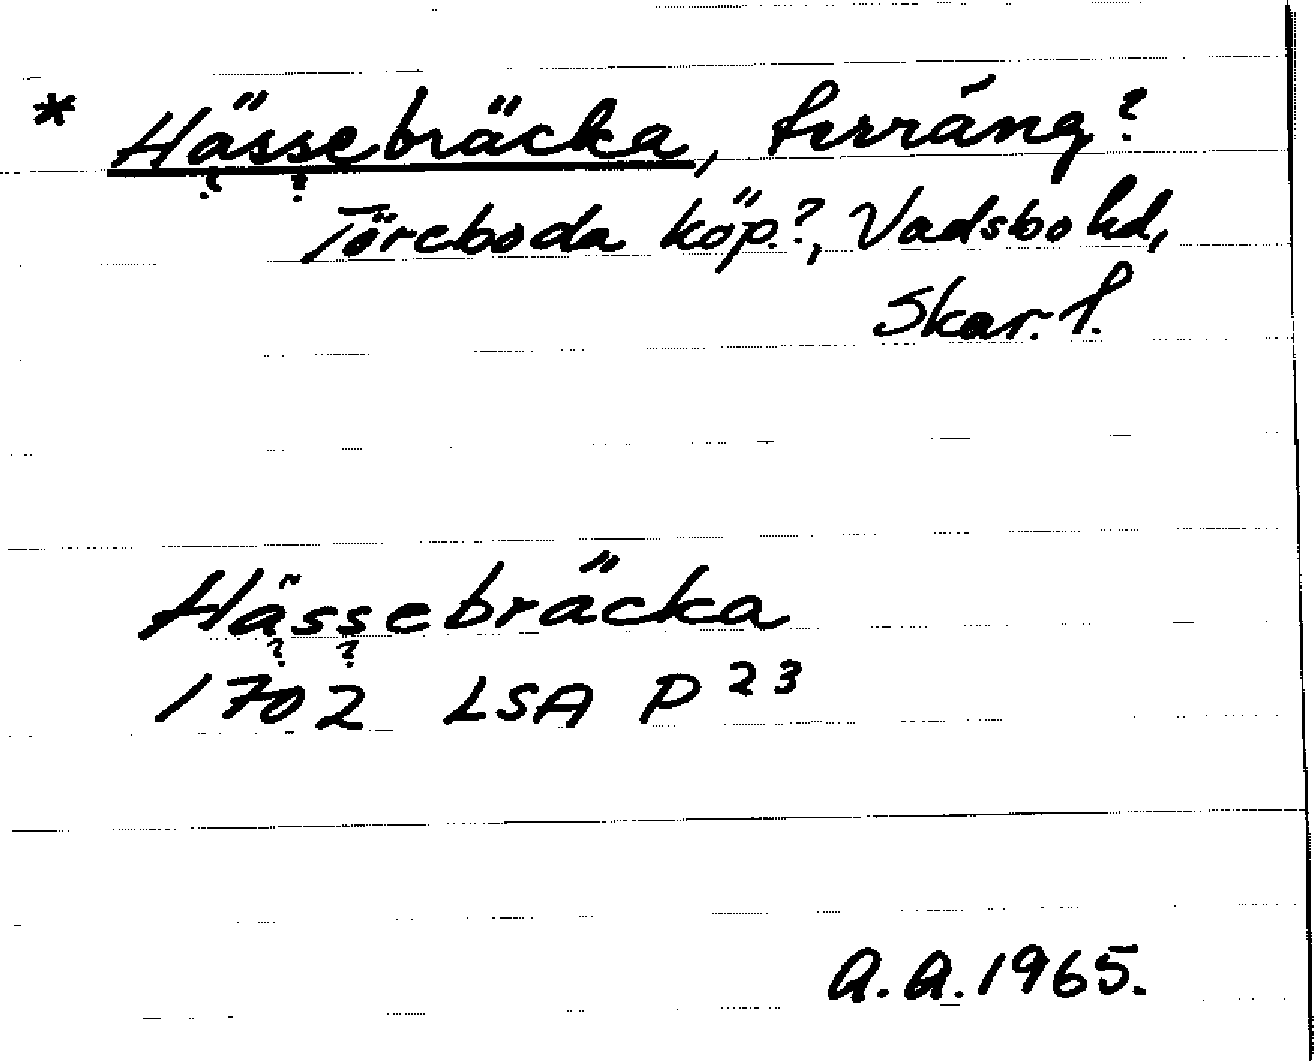 * Hässebräcka, terräng?
? ?
Töreboda köp.?, Vadsbo hd,
Skar. l.
Hässebräcka
? ?
1702 LSA P 23
A.A. 1965.